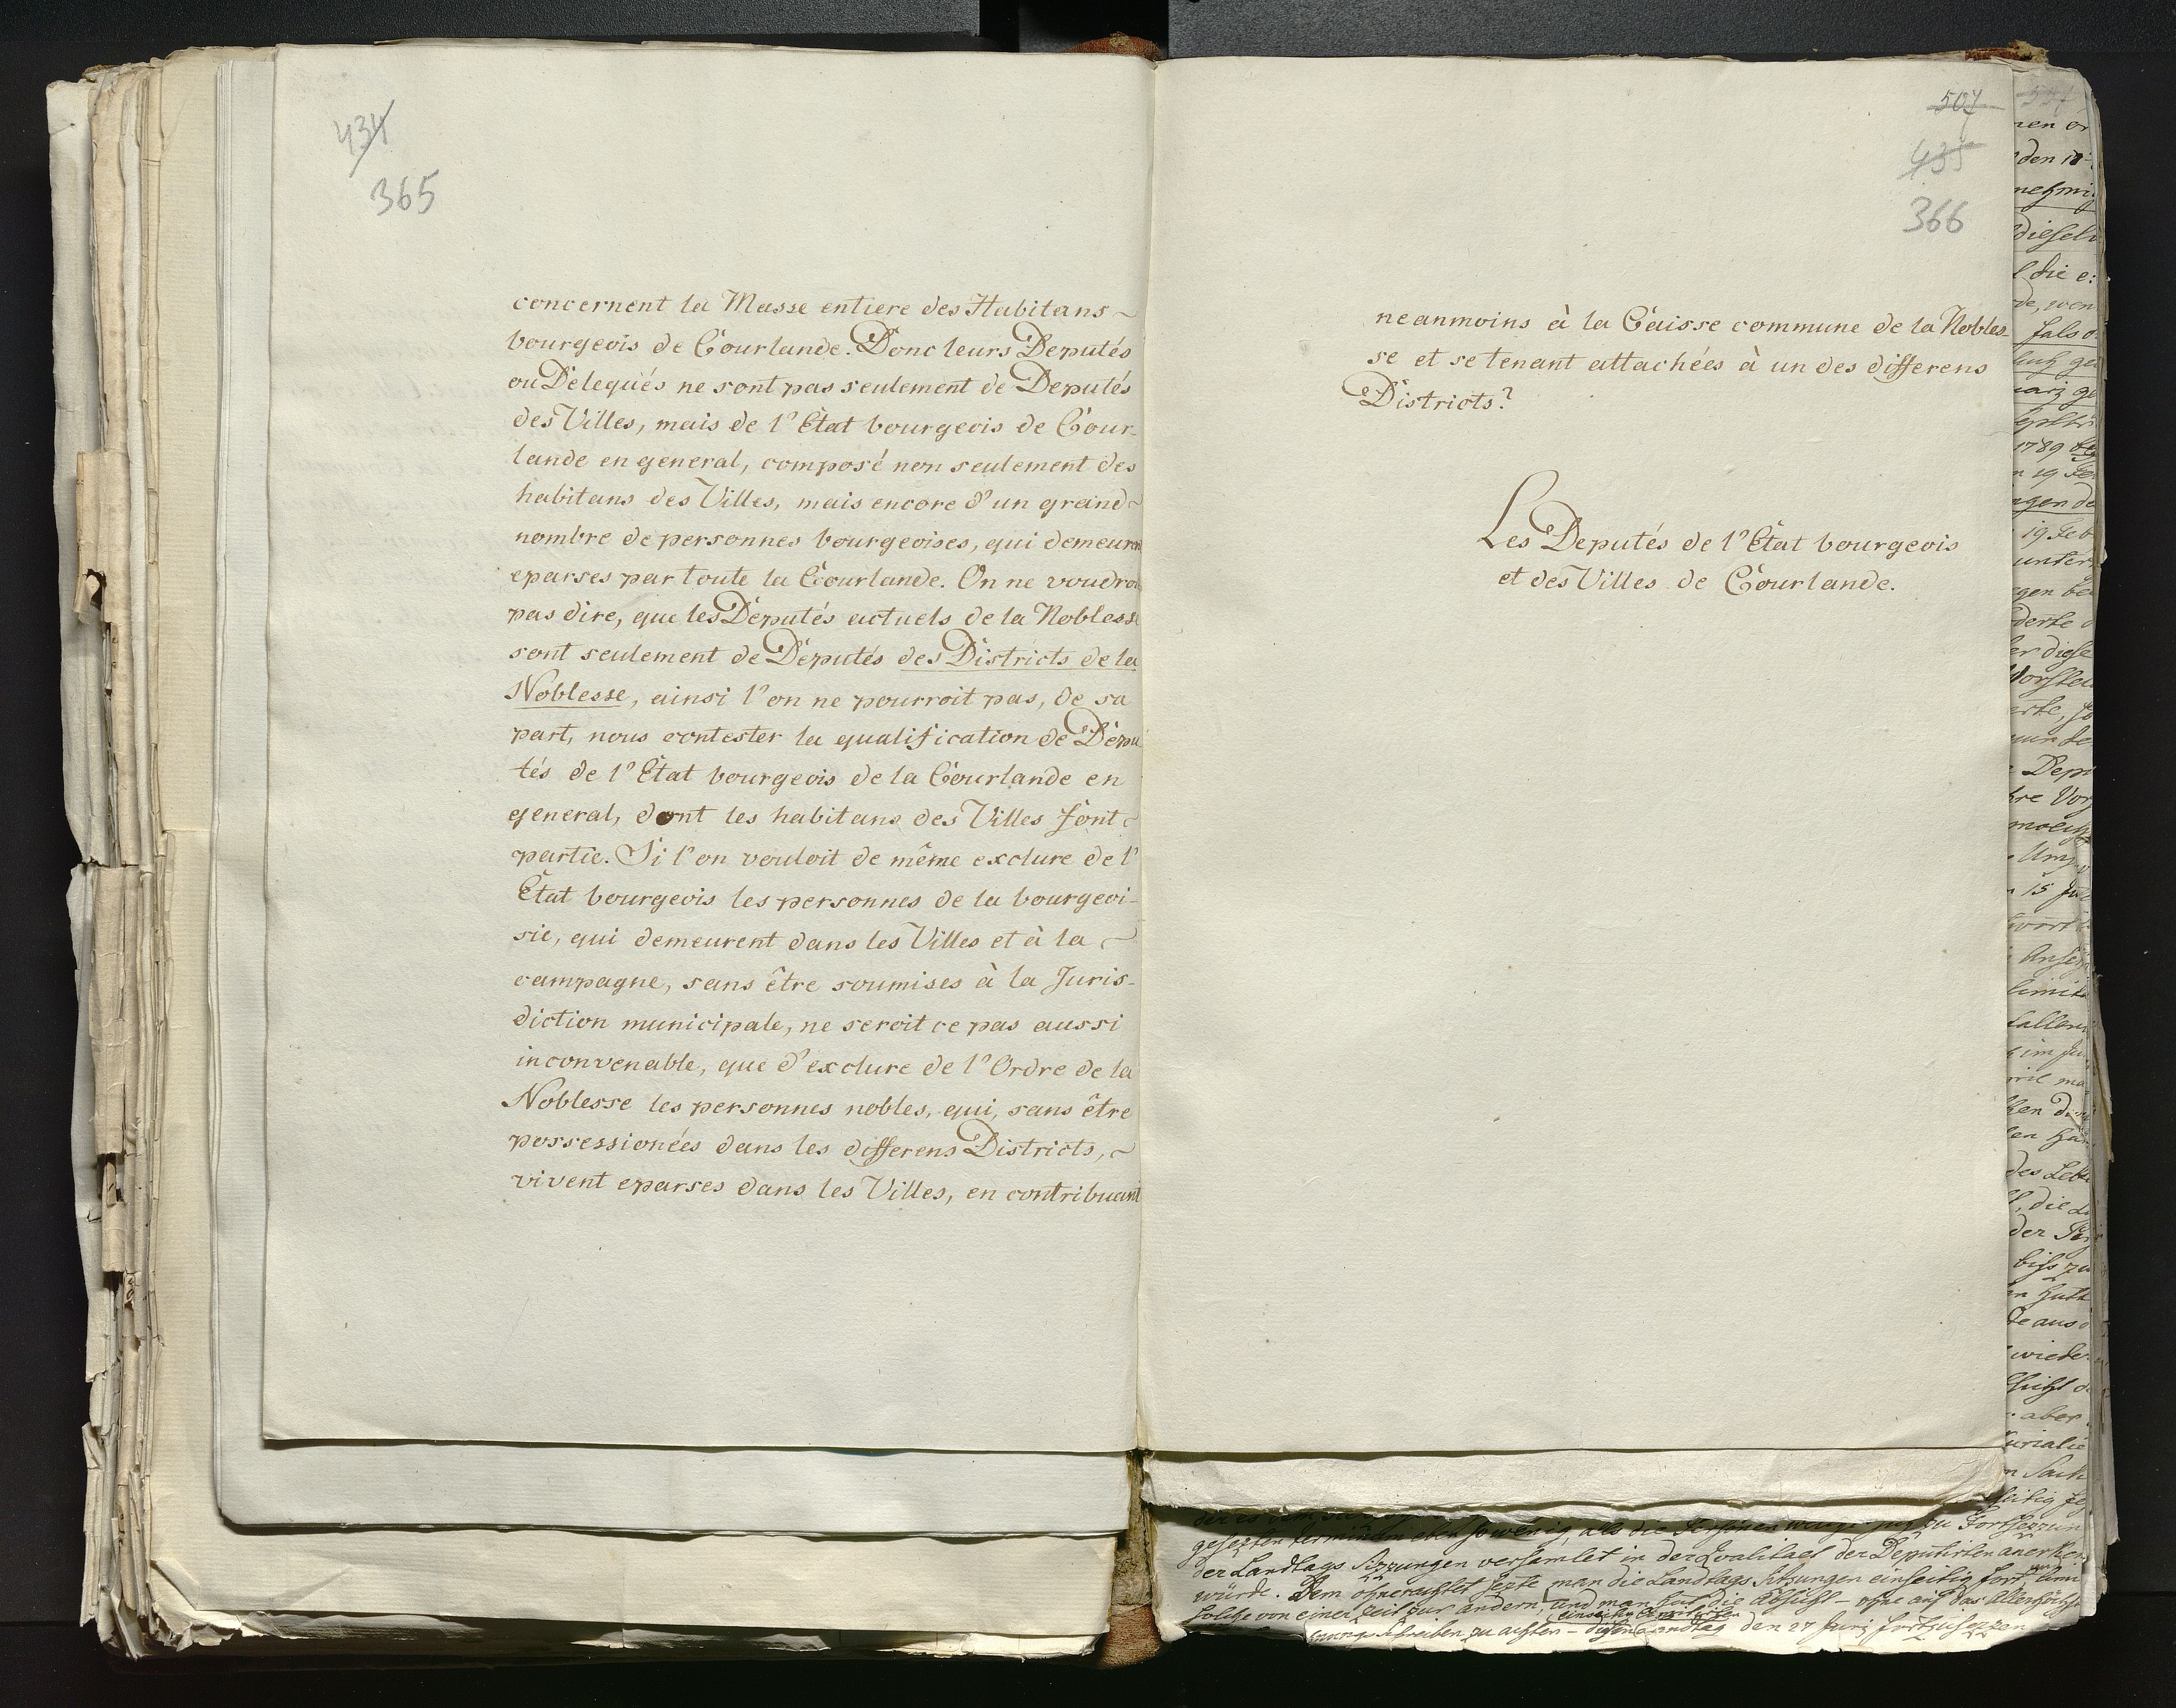 434
365
concernent la Masse entiere des Habitans
bourgeois de Courlande. Donc leurs Deputés
ou Delegués ne sont pas seulement de Deputés
des Villes, mais de l'Etat bourgeois de Cour-
lande en general, composé non seulement des
habitans des Villes, mais encore d'un grand
nombre de personnes bourgeoises, qui demeurent
eparses par toute la Courlande. On ne voudroit
pas dire, que les Deputés actuels de la Noblesse
sont seulement de Deputés des Districts de la
Noblesse, ainsi l'on ne pourroit pas, de sa
part, nous contester la qualification de Depu-
tés de l'Etat bourgeois de la Courlande en
general, dont les habitans des Villes font
partie. Si l'on vouloit de même exclure de l'
Etat bourgeois les personnes de la bourgeoi-
sie, qui demeurent dans les Villes et à la
campagne, sans être soumises à la Juris-
diction municipale, ne seroit ce pas aussi
inconvenable, que d'exclure de l'Ordre de la
Noblesse les personnes nobles, qui, sans être
possessionées dans les differens Districts,
vivent eparses dans les Villes, en contribuant
507
435
366
neanmoins à la Caisse commune de la Nobles-
se et se tenant attachées à un des differens
Districts?
Les Deputés de l'Etat bourgeois
et des Villes de Courlande.
nen
den
die
1789
19 Feb
unter
diese
15
des
die
der
aber
gesezten terminum eben so wenig, als die Personen zu Fortsezzun
der Landtags Sizzungen versamlet in der Qualitaet der Deputirten aner
würde. Dem ohnerachtet sezte man die Landtags Sitzungen einseitig fort
solche von einer Zeit zur andern, und man hat die Absicht – ohne auf das Allerhöchs
zu achten – diesen Landtag den 27 Junij fortzusezzen